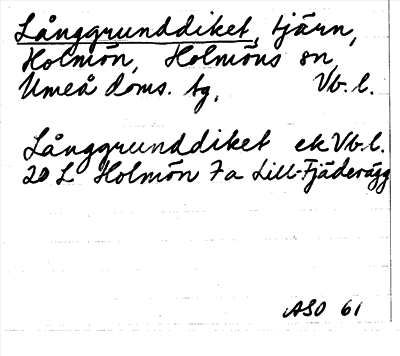 Långgrunddiket, tjärn,
Holmön, Holmöns sn,
Umeå doms. tg,
Vb. l.
Långgrunddiket ek Vb. l.
20 L Holmön 7a Lill-Fjäderägg
ASO 61